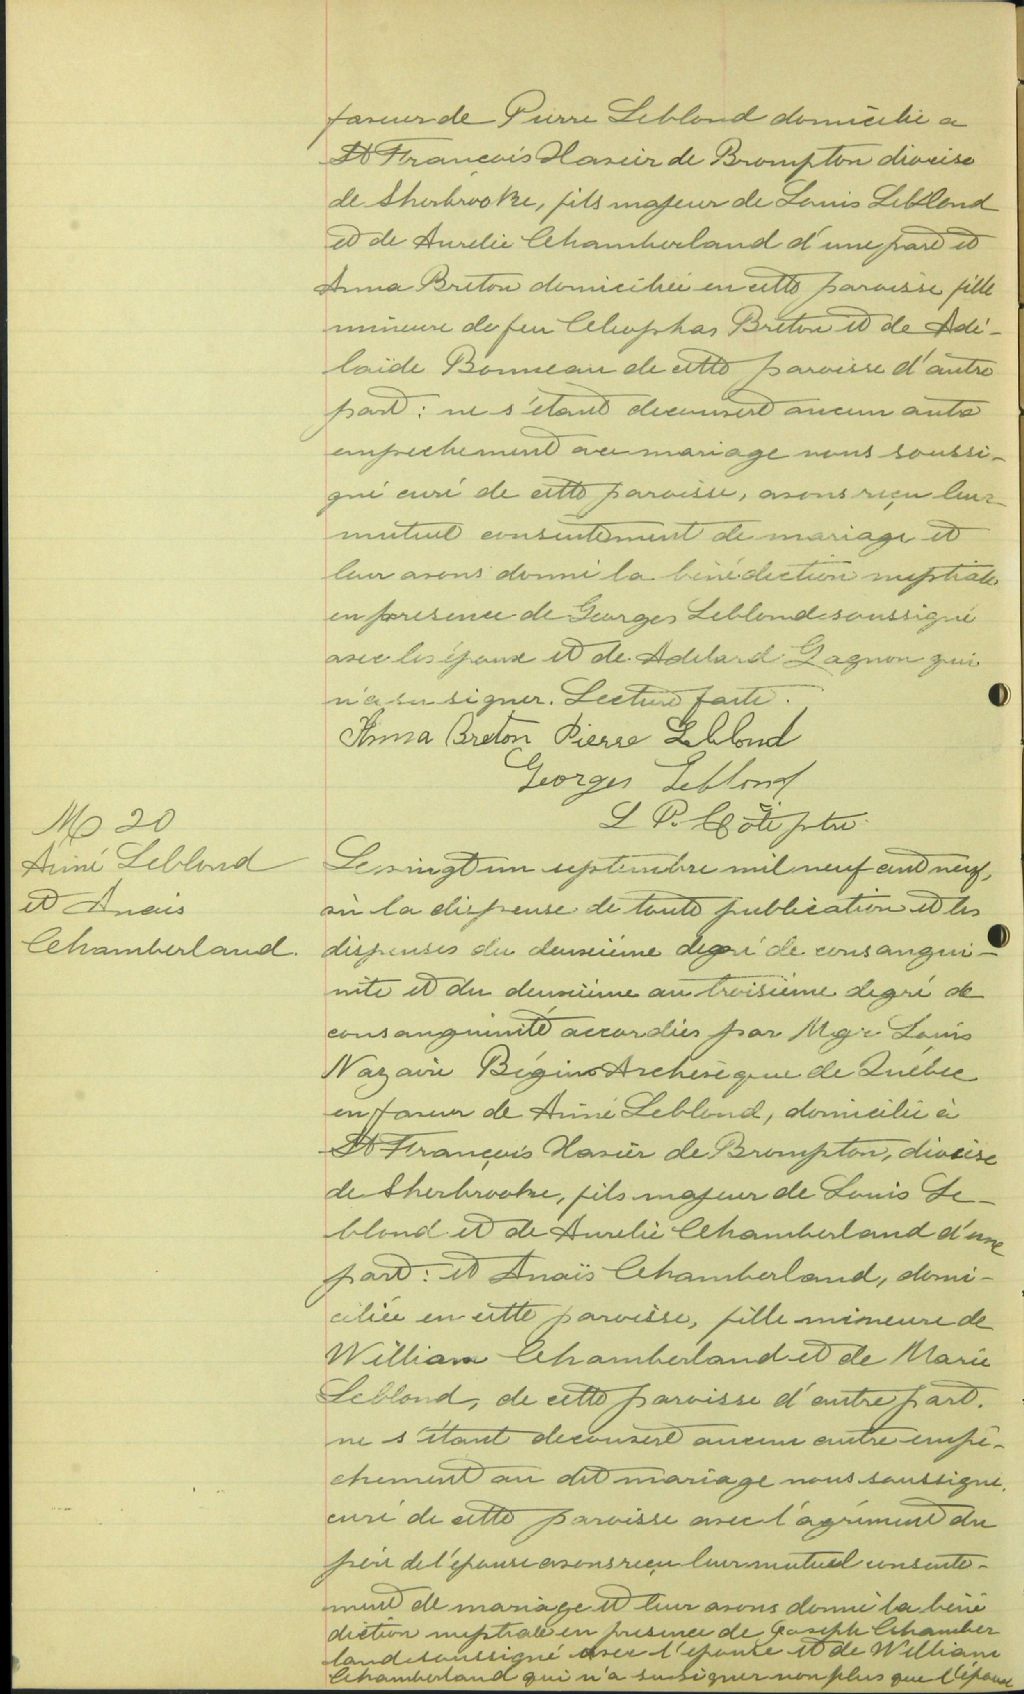 faveur de Pierre Leblond domicilié a
St François Xavier de Brompton diocèse
de Sherbrooke, fils majeur de Louis Leblond
et de Aurelie Chamberland d'une part et
Anna Breton domiciliée en cette paroisse fille
mineure de feu Cléophas Breton et de Adé-
laïde Bonneau de cette paroisse d'autre
part : ne s'étant decouvert aucun autre
empechement a ce mariage nous soussi-
gné curé de cette paroisse, avons reçu leur
mutuel consentement de mariage et
leur avons donné la bénédiction nuptiale
en presence de Georges Leblond soussigné
avec les époux et de Adelard Gagnon qui
n'a su signer. Lecture faite.
Anna Breton Pierre Leblond
Georges Leblond
L P. Côté ptre
M 20
Aimé Leblond
et Anais
Chamberland.
Le vingt un septembre mil neuf cent neuf,
vu la dispense de toute publication et les
dispenses du deuxième degré de consangui-
nité et du deuxième au troisième degré de
consanguinité accordées par Mgr Louis
Nazaire Bégin Archevêque de Québec
en faveur de Aimé Leblond, domicilié à
St François Xavier de Brompton, diocèse
de Sherbrooke, fils majeur de Louis Le-
blond et de Aurelie Chamberland d'une
part : et Anaïs Chamberland, domi-
ciliée en cette paroisse, fille mineure de
William Chamberland et de Marie
Leblond, de cette paroisse d'autre part.
ne s'étant decouvert aucun autre empê-
chement au dit mariage nous soussigné,
curé de cette paroisse avec l'agrément du
père de l'épouse avons reçu leur mutuel consente-
ment de mariage et leur avons donné la béné
diction nuptiale en presence de Joseph Chamber
land soussigné avec l'épouse et de William
Chamberland qui n'a su signer non plus que l'époux